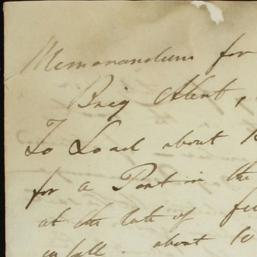 Memorandum for
Brig Albert,
To Load about 1
for a Port in the
at the rate of
in full. about 10